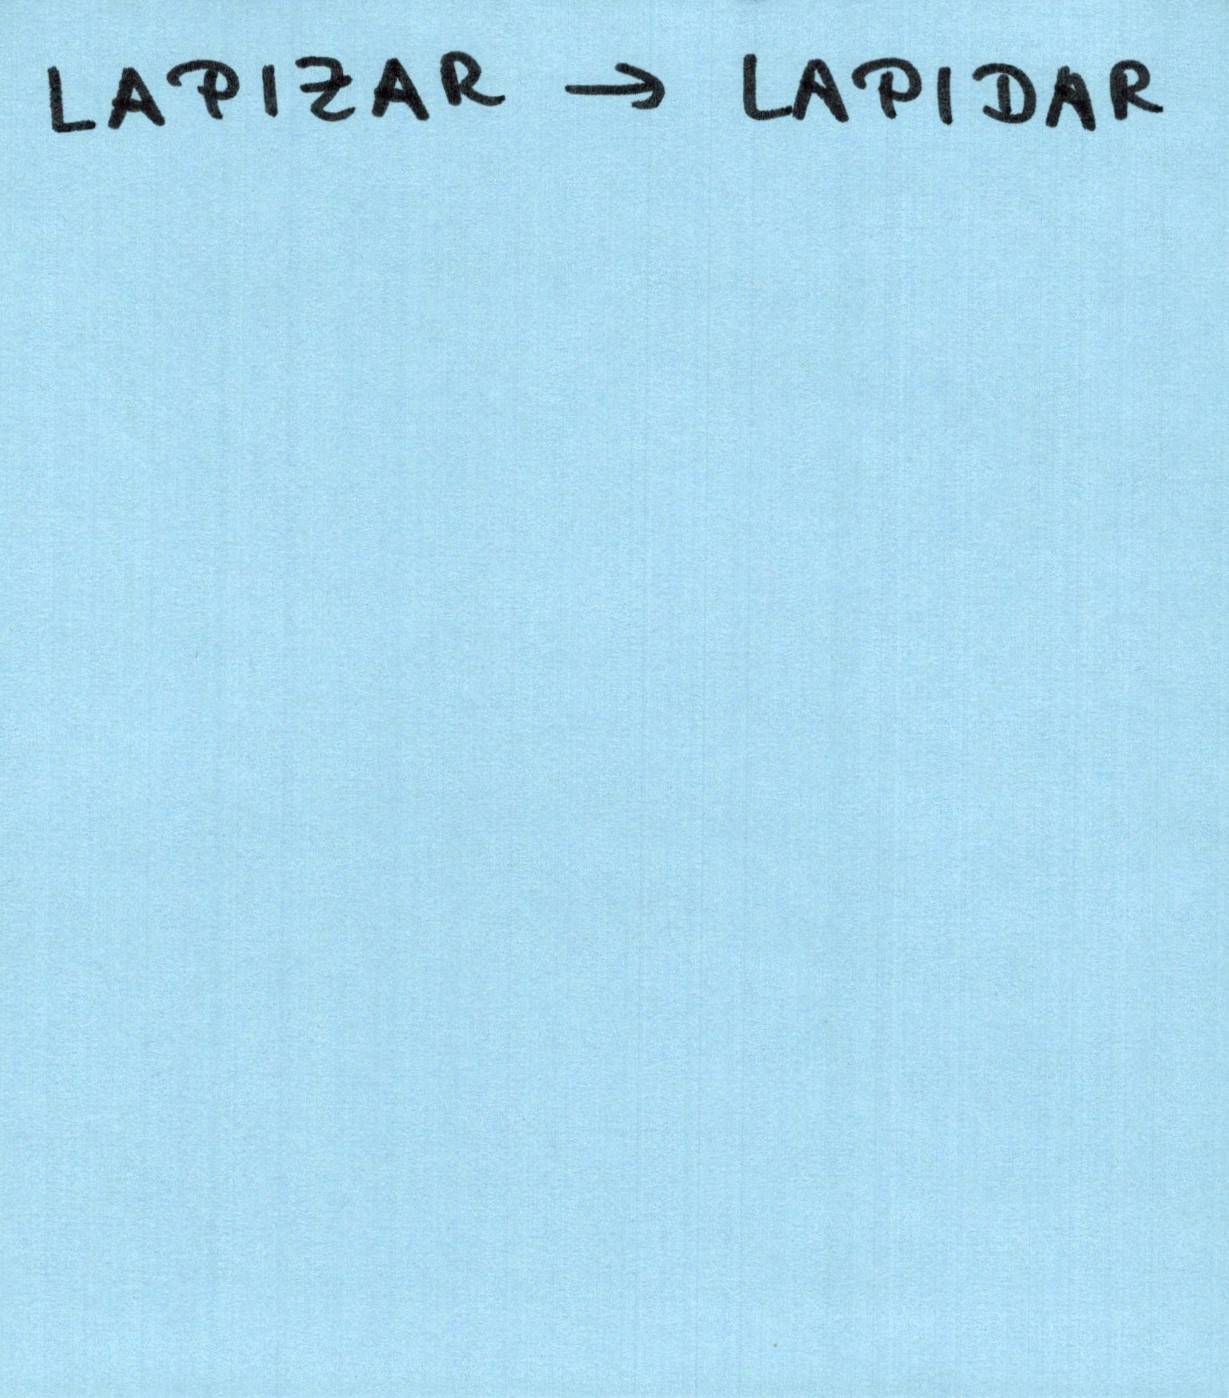 LAPIZAR → LAPIDAR